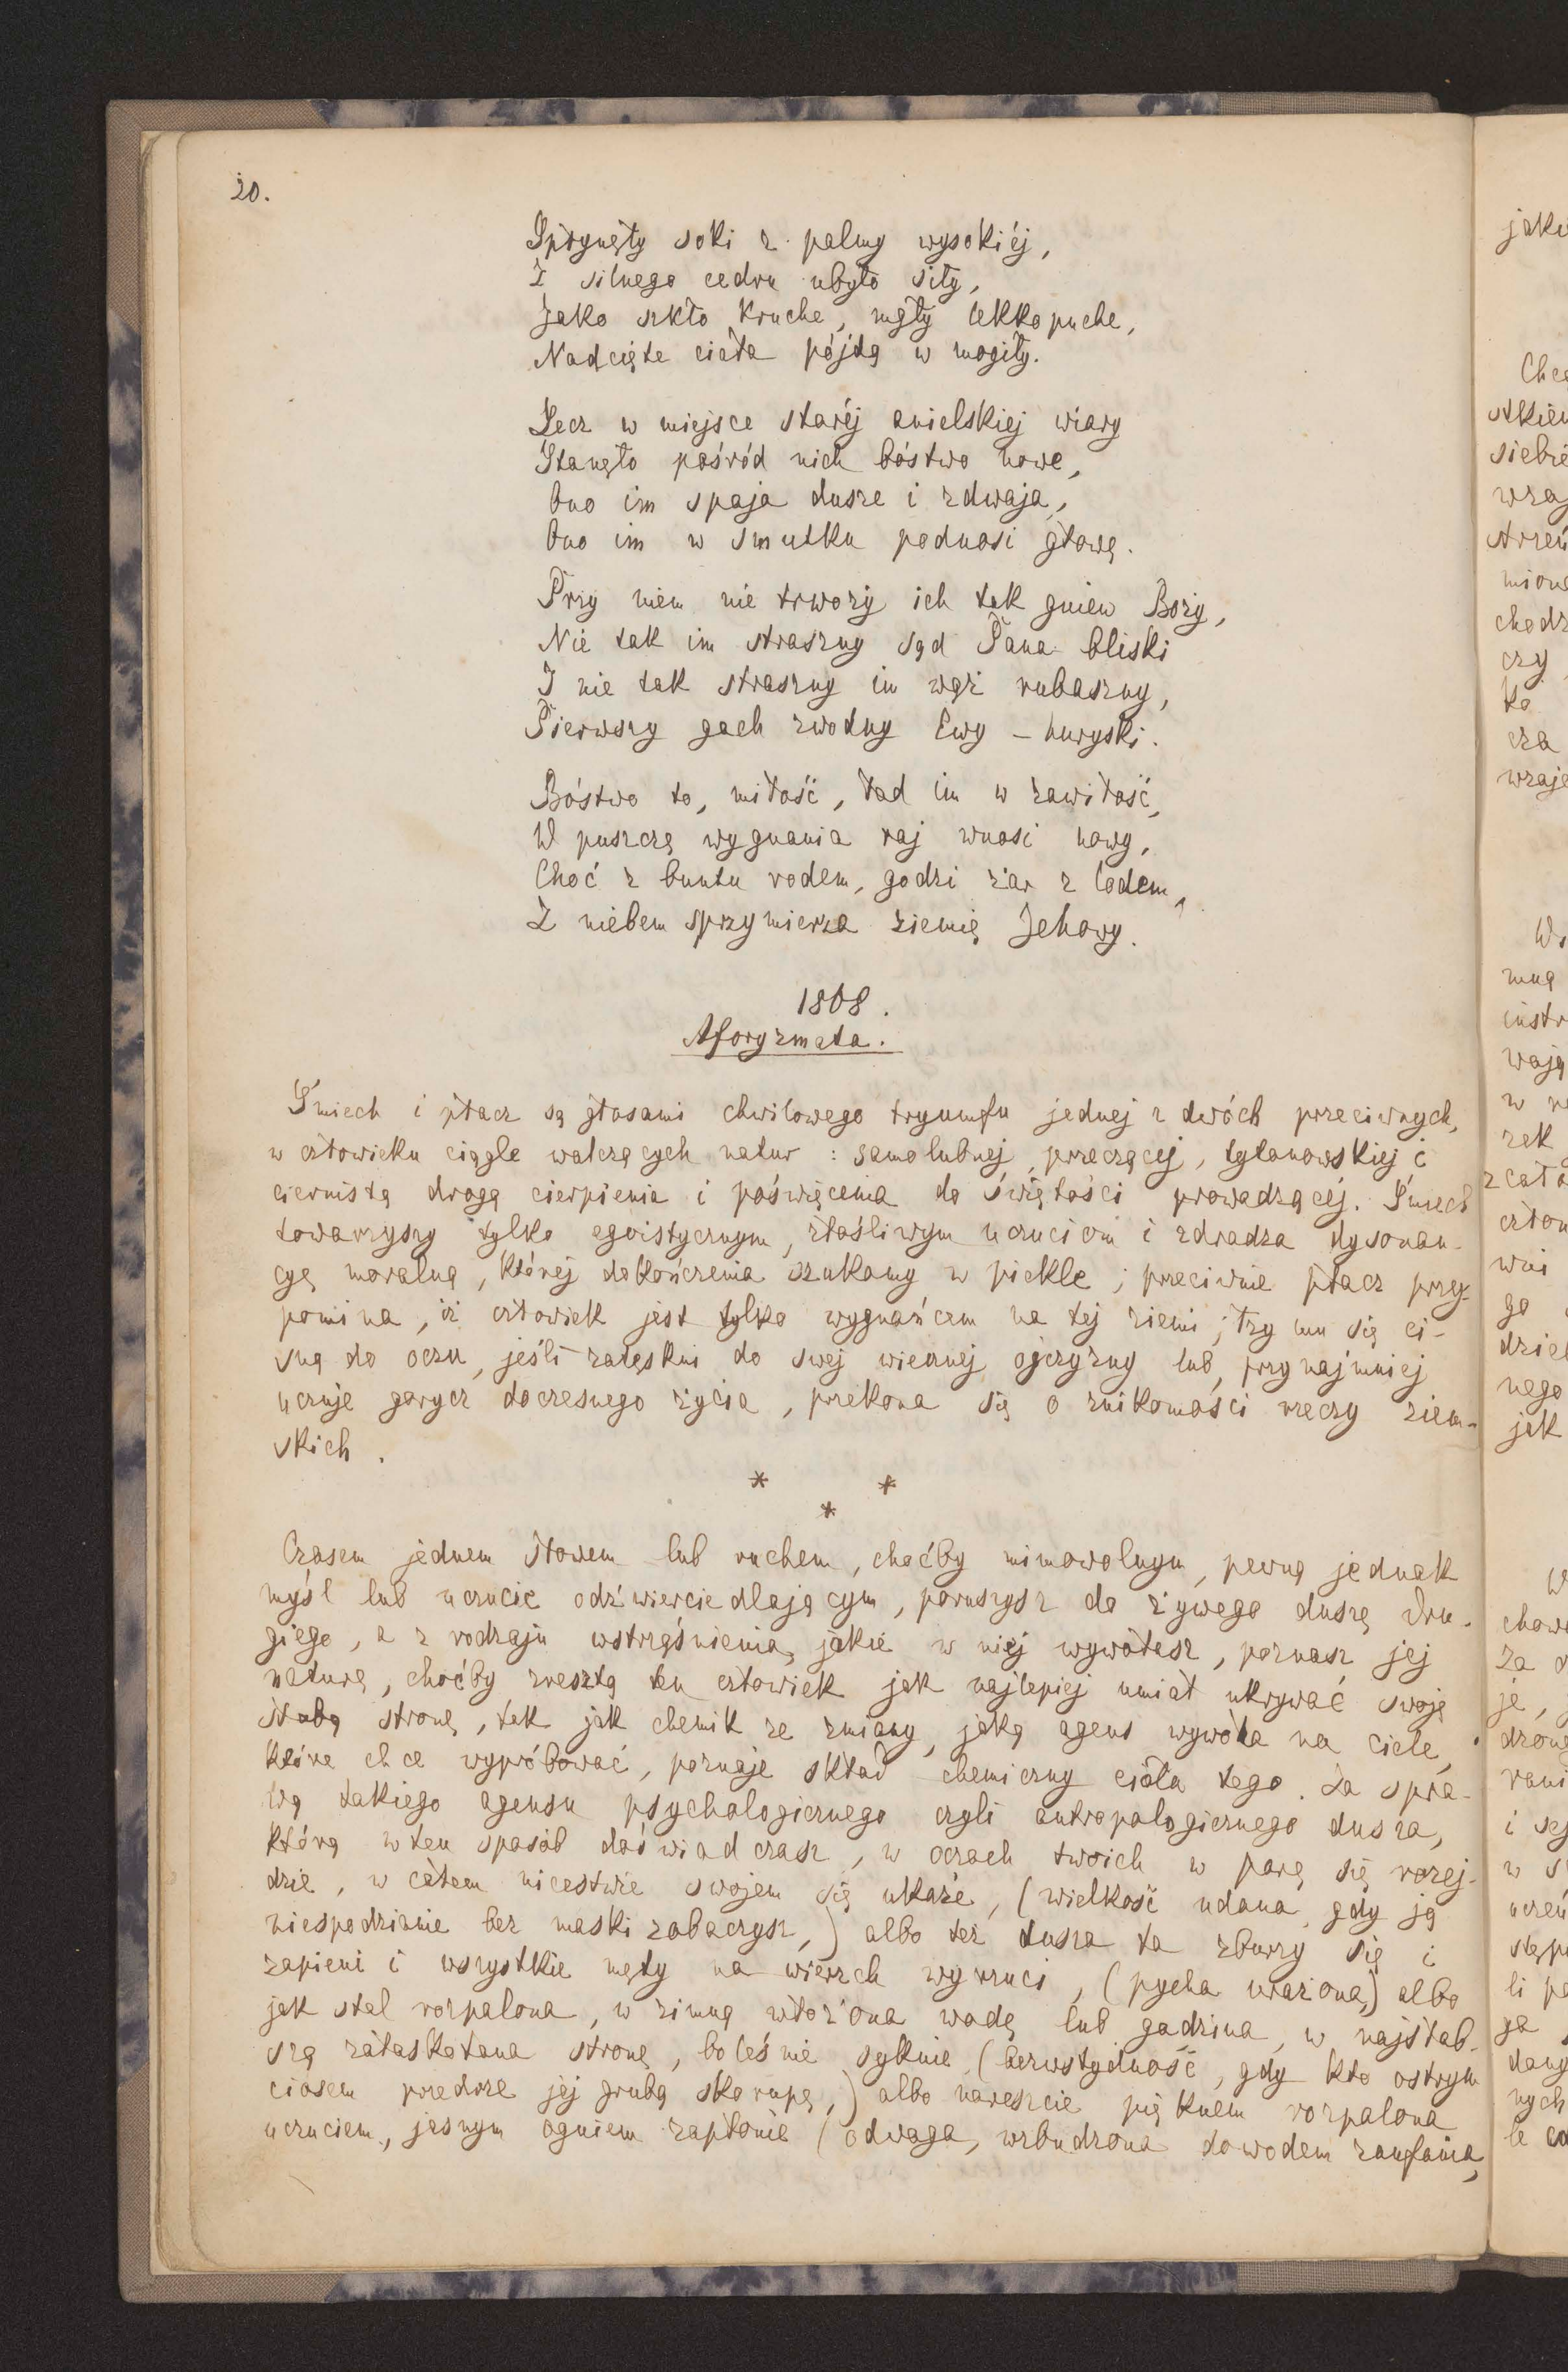 20.
Spłynęły soki z palmy wysokiéj,
Z silnego cedru ubyło siły,
Jako szkło kruche, mgły lekkopuche,
Nadcięte ciała pójdą w mogiły.
Lecz w miejsce staréj anielskiej wiary
Stanęło pośród nich bóstwo nowe,
Ono im spaja dusze i zdwaja,
Ono im w smutku podnosi głowę.
Przy niem nie trwoży ich tak gniew Boży,
Nie tak im straszny sąd Pana bliski
I nie tak straszny im wąż rubaszny,
Pierwszy gach zwodny Ewy – huryski.
Bóstwo to, miłość, ład im w zawiłość,
W puszczę wygnania raj wnosi nowy,
Choć z buntu rodem, godzi żar z lodem,
Z niebem sprzymierza ziemię Jehowy.
1868.
Aforyzmata.
Śmiech i płacz są głosami chwilowego tryumfu jednej z dwóch przeciwnych,
w człowieku ciągle walczących natur: samolubnej, przeczącej, tytanowskiej i
ciernistą drogą cierpienia i poświęcenia do świętości prowadzącéj. Śmiech
towarzyszy tylko egoistycznym, złośliwym uczuciom i zdradza dysonan-
cyę moralną, której dokończenia szukamy w piekle; przeciwnie płacz przy-
pomina, iż człowiek jest tylko wygnańcem na tej ziemi; łzy mu się ci-
sną do oczu, jeśli zatęskni do swej wiecznej ojczyzny lub, przynajmniej
uczuje gorycz doczesnego życia, przekona się o znikomości rzeczy ziem-
skich.
* *
*
Czasem jednem słowem lub ruchem, choćby mimowolnym, pewną jednak
myśl lub uczucie odźwierciedlającym, poruszysz do żywego duszę dru-
giego, a z rodzaju wstrząśnienia, jakie w niej wywołasz, poznasz jej
naturę, choćby zresztą ten człowiek jak najlepiej umiał ukrywać swoję
słabą stronę, tak jak chemik ze zmiany, jaką agens wywoła na ciele,
które chce wypróbować, poznaje skład chemiczny ciała tego. Za spra-
wą takiego agensu psychologicznego czyli antropologicznego dusza,
którą w ten sposób doświadczasz, w oczach twoich w parę się rozej-
dzie, w całem nicestwie swojem się ukaże, (wielkość udana, gdy ją
niespodzianie bez maski zobaczysz,) albo też dusza ta zburzy się i
zapieni i wszystkie męty na wierzch wyrzuci, (pycha urażona,) albo
jak stal rozpalona, w zimną włożona wodę lub gadzina, w najsłab-
szą załaskotana stronę, boleśnie syknie (bezwstydność, gdy kto ostrym
ciosem przedrze jej grubą skorupę,) albo nareszcie pięknem rozpalona
uczuciem, jasnym ogniem zapłonie (odwaga, wzbudzona dowodem zaufania,